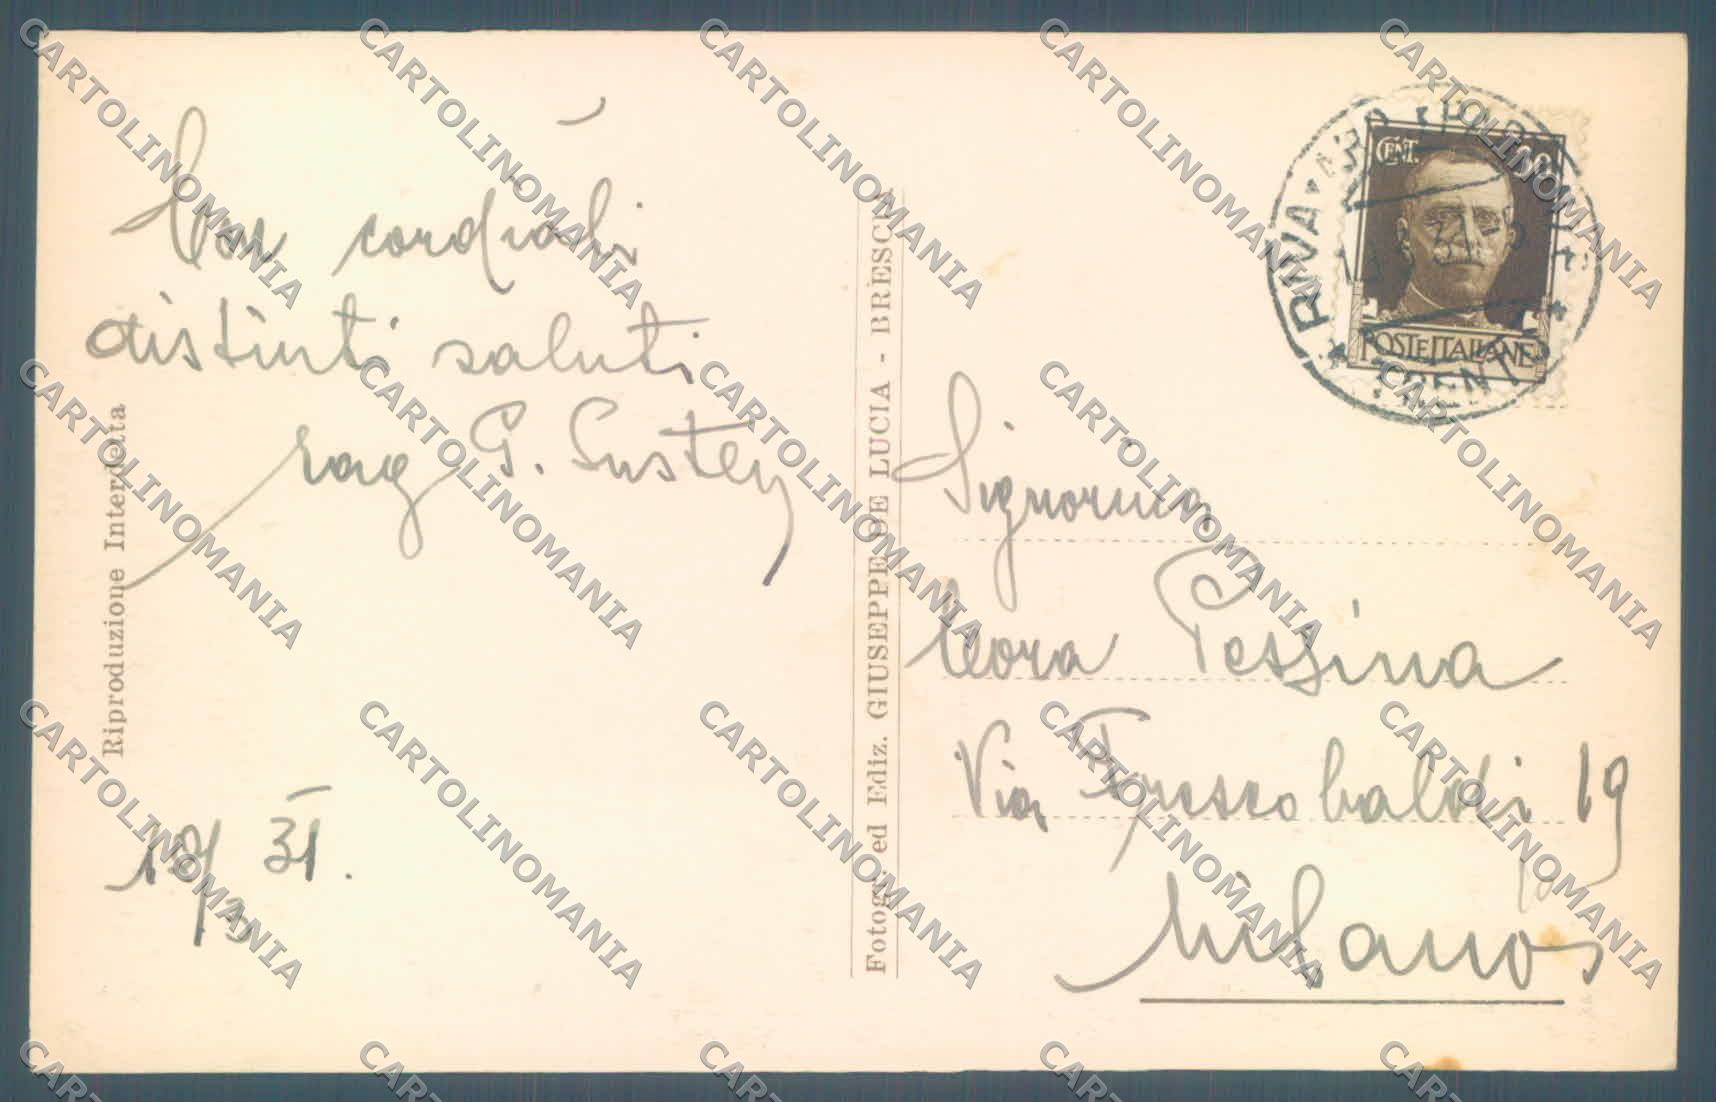 Con cordiali
distinti saluti
rag G.
19/3 31.
Riproduzione Interdetta
Fotogr. ed Ediz. GIUSEPPE DE LUCIA - BRESCIA
CENT. 30
POSTE ITALIANE
RIVA
TRENTO
Signorina
Pessina
Via Frescobaldi 19
Milano
CARTOLINOMANIA